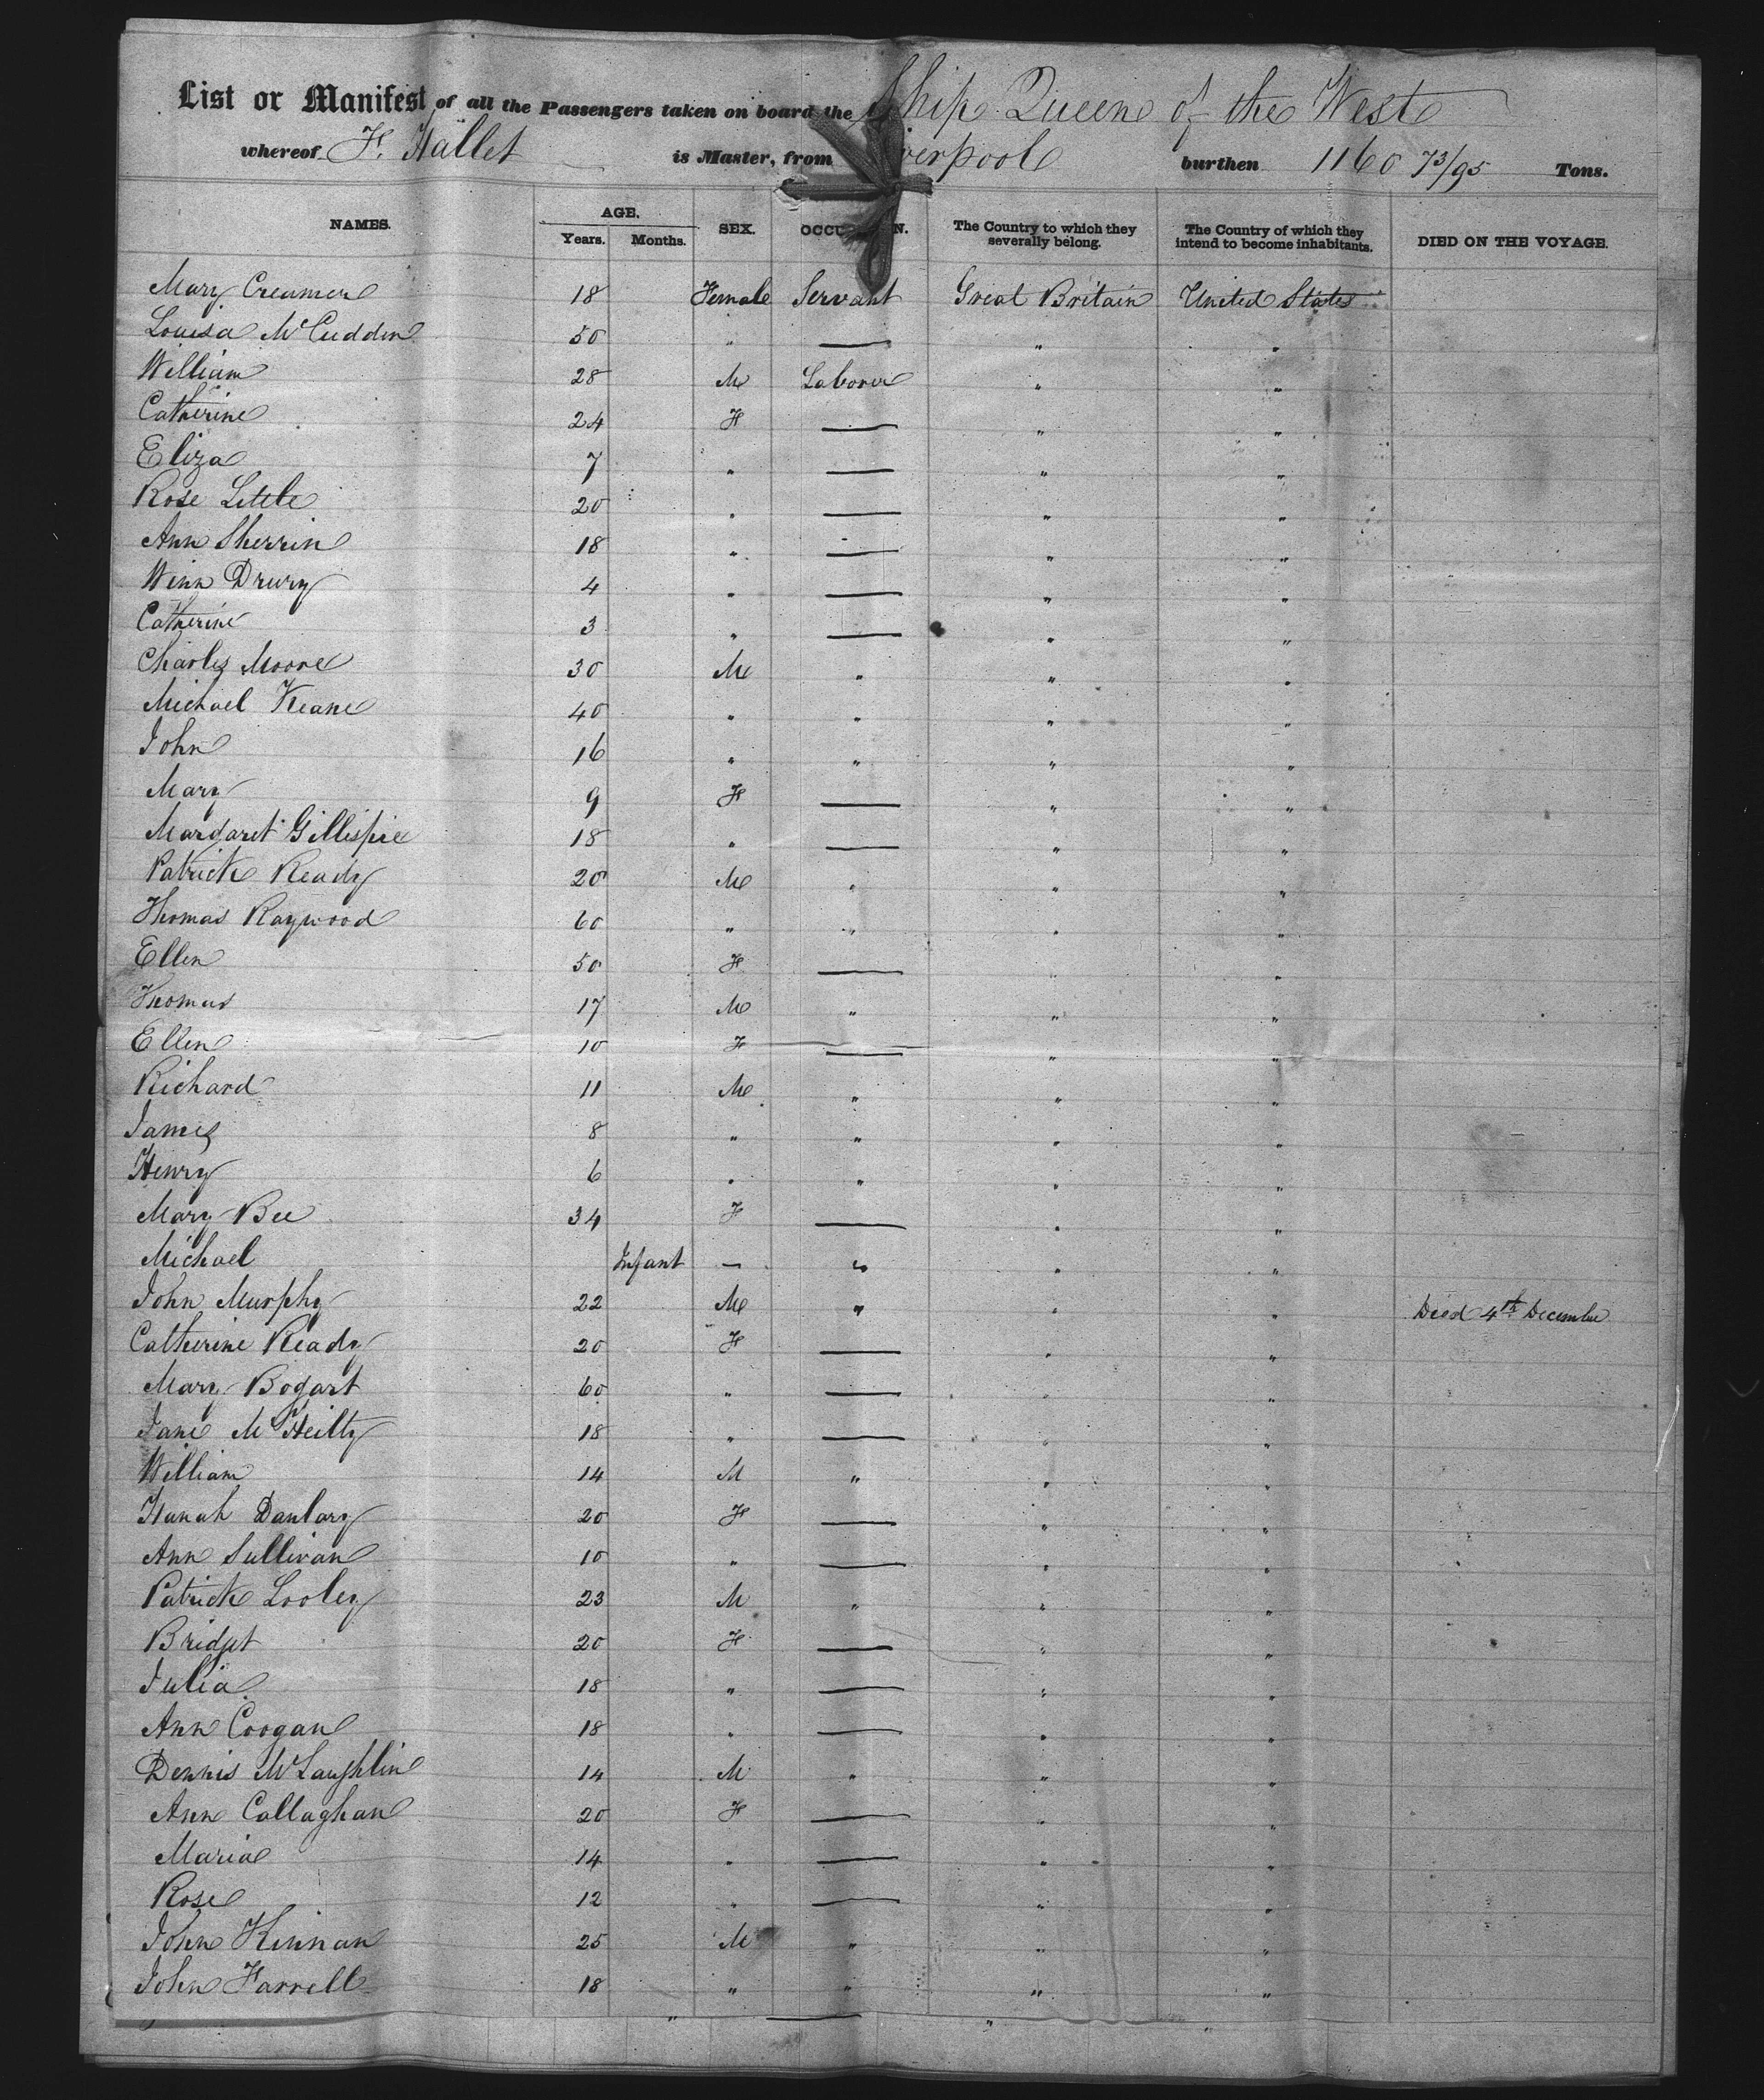 List or Manifest of all the Passengers taken on board the Ship Queen of the West
whereof F. Hallet is Master, from Liverpool burthen 1160 73/95 Tons.
NAMES. AGE. Years. Months. SEX. OCCUPATION. The Country to which they severally belong. The Country of which they intend to become inhabitants. DIED ON THE VOYAGE.
Mary Creamer 18 Female Servant Great Britain United States
Louisa McCudden 50 " — " "
William 28 M Laborer " "
Catherine 24 F — " "
Eliza 7 " — " "
Rose Little 20 " — " "
Ann Sherrin 18 " — " "
Winn Drury 4 " — " "
Catherine 3 " — " "
Charles Moore 30 M " " "
Michael Keane 40 " " " "
John 16 " " " "
Mary 9 F — " "
Margaret Gillispie 18 " — " "
Patrick Ready 20 M " " "
Thomas Raywood 60 " " " "
Ellen 50 F — " "
Thomas 17 M " " "
Ellen 10 F — " "
Richard 11 M " " "
James 8 " " " "
Henry 6 " " " "
Mary Bee 34 F — " "
Michael Infant — " " "
John Murphy 22 M " " " Died 4th December
Catherine Ready 20 F — " "
Mary Bogart 60 " — " "
Jane McHeilty 18 " — " "
William 14 M " " "
Hanah Danlary 20 F — " "
Ann Sullivan 10 " — " "
Patrick Looley 23 M " " "
Bridget 20 F — " "
Julia 18 " — " "
Ann Coogan 18 " — " "
Dennis McLaughlin 14 M " " "
Ann Callaghan 20 F — " "
Maria 14 " — " "
Rose 12 " — " "
John Kinnan 25 M " " "
John Farrell 18 " " " "
" — " "